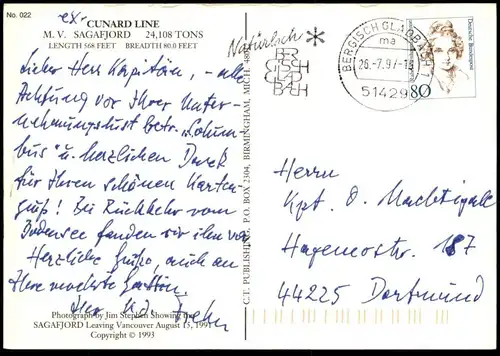 No. 022
ex-
CUNARD LINE
M. V. SAGAFJORD 24,108 TONS
LENGTH 568 FEET BREADTH 80.0 FEET
Lieber Herr Kapitän, - alle
Achtung vor Ihrer Unter-
nehmungslust betr. "Colum-
bus" u. herzlichen Dank
für Ihren schönen Karten-
gruß! Bei Rückkehr vom
Bodensee fanden wir ihn vor
Herzliche Grüße, auch an
Ihre verehrte Gattin.
Ihr
Photograph by Jim Stephen Showing the
SAGAFJORD Leaving Vancouver August 15, 1991
Copyright © 1993
C.T. PUBLISHING, P.O. BOX 2304, BIRMINGHAM, MICH.
Natürlich *
BER
GISCH
GLAD
BACH
BERGISCH GLADBACH 1
ma
26.-7.97-16
51429
Deutsche Bundespost
80
Herrn
Kpt. O. Nachtigall
Hagenerstr. 187
44225 Dortmund